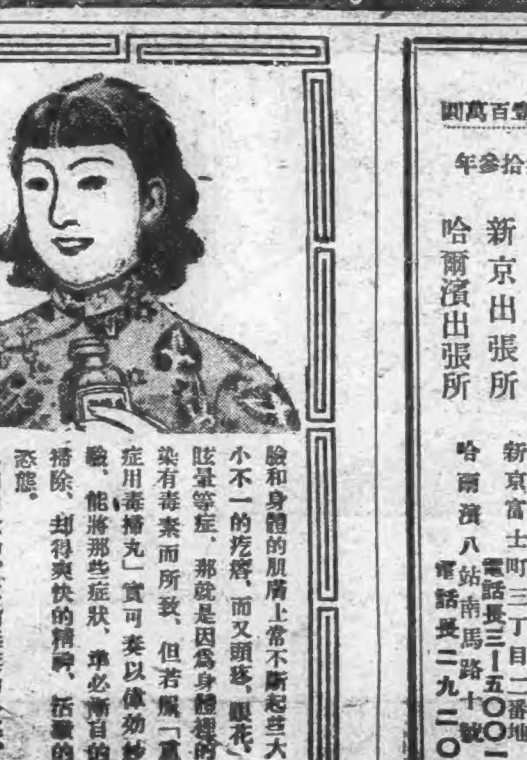 壹百萬圓
拾參年
新京出張所
新京富士町三丁目二番地
電話長三一五〇〇一
哈爾濱出張所
哈爾濱八站南馬路十號
電話長二九二〇
臉和身體的肌膚上常不斷起些大
小不一的疙瘩、而又頭疼、眼花、
眩暈等症、那就是因爲身體裡的
染有毒素而所致、但若服「
症用毒掃丸」實可奏以偉効
驗、能將那些症狀、準必漸自的
掃除、却得爽快的精神、活潑的
姿態。